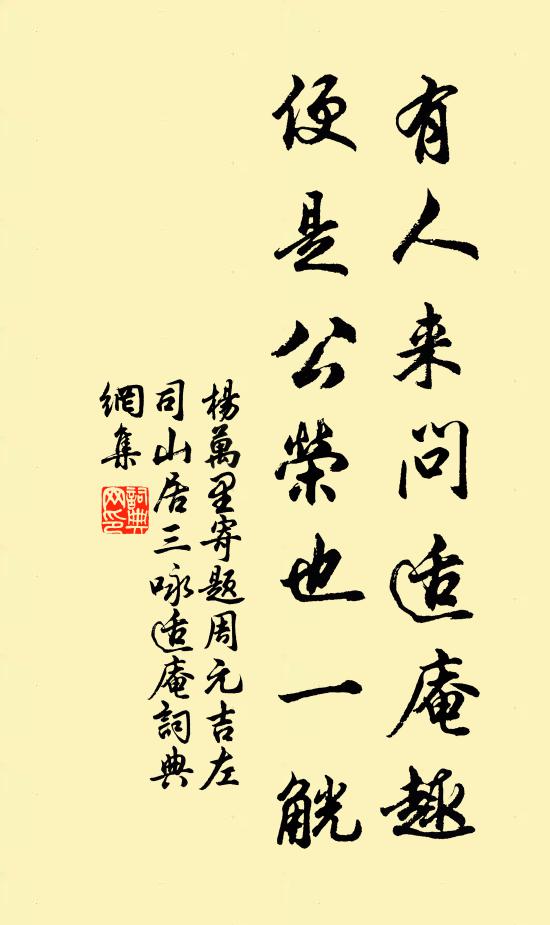 有人来问适庵趣
便是公榮也一觥
楊萬里寄题周元吉左
司山居三咏适庵詞典
網集
詞典網印